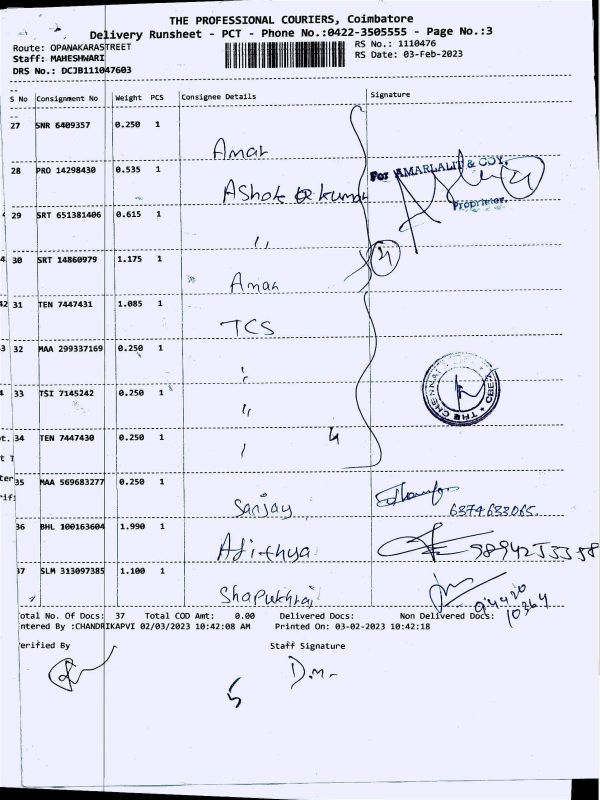 THE PROFESSIONAL COURIERS, Coimbatore
Delivery Runsheet - PCT - Phone No.:0422-3505555 - Page No.:3
Route: OPANAKARASTREET
Staff: MAHESHWARI
DRS No.: DCJB111047603
RS No.: 1110476
RS Date: 03-Feb-2023
S No Consignment No Weight PCS Consignee Details Signature
27 SNR 6409357 0.250 1
Amar
28 PRO 14298430 0.535 1
Ashok kumar
For AMARLALIT & COY.
Proprietor.
29 SRT 651381406 0.615 1
,,
30 SRT 14860979 1.175 1
Amar
31 TEN 7447431 1.085 1
TCS
32 MAA 299337169 0.250 1
,,
33 TSI 7145242 0.250 1
,,
THE CHENNAI CBE
34 TEN 7447430 0.250 1
35 MAA 569683277 0.250 1
Sanjay
6374633065.
36 BHL 100163604 1.990 1
Adithya
37 SLM 313097385 1.100 1
Shapukhraj
94420
10364
otal No. Of Docs: 37 Total COD Amt: 0.00 Delivered Docs: Non Delivered Docs:
ntered By :CHANDRIKAPVI 02/03/2023 10:42:08 AM Printed On: 03-02-2023 10:42:18
erified By Staff Signature
D.M.